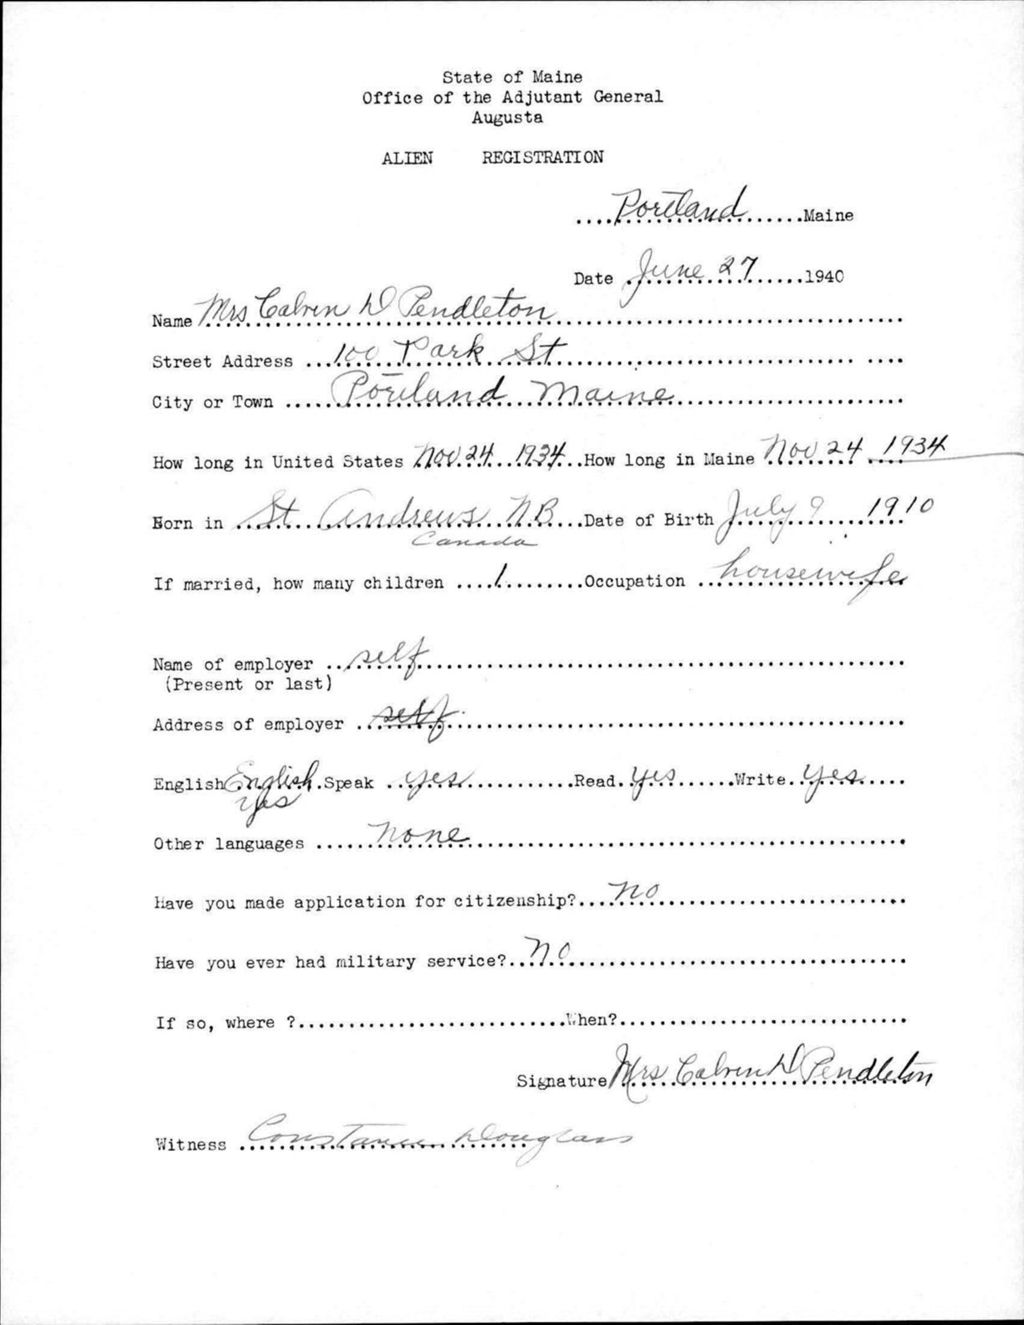 State of Maine
Office of the Adjutant General
Augusta
ALIEN REGISTRATION
....Portland......Maine
Date June 27......1940
Name Mrs Calvin D Pendleton
Street Address ...100 Park St
City or Town ..... Portland Maine
How long in United States Nov 24 1934...How long in Maine Nov 24 1934
Born in St. Andrews N.B....Date of Birth July 9 1910
Canada
If married, how many children ....1.........Occupation ..housewife
Name of employer ..self
(Present or last)
Address of employer ..self
English English.Speak ..yes..........Read.yes......Write..yes.....
yes
Other languages ......none
Have you made application for citizenship?....no
Have you ever had military service?..no
If so, where ?...........................When?.............................
Signature Mrs Calvin D Pendleton
Witness Constance Douglass